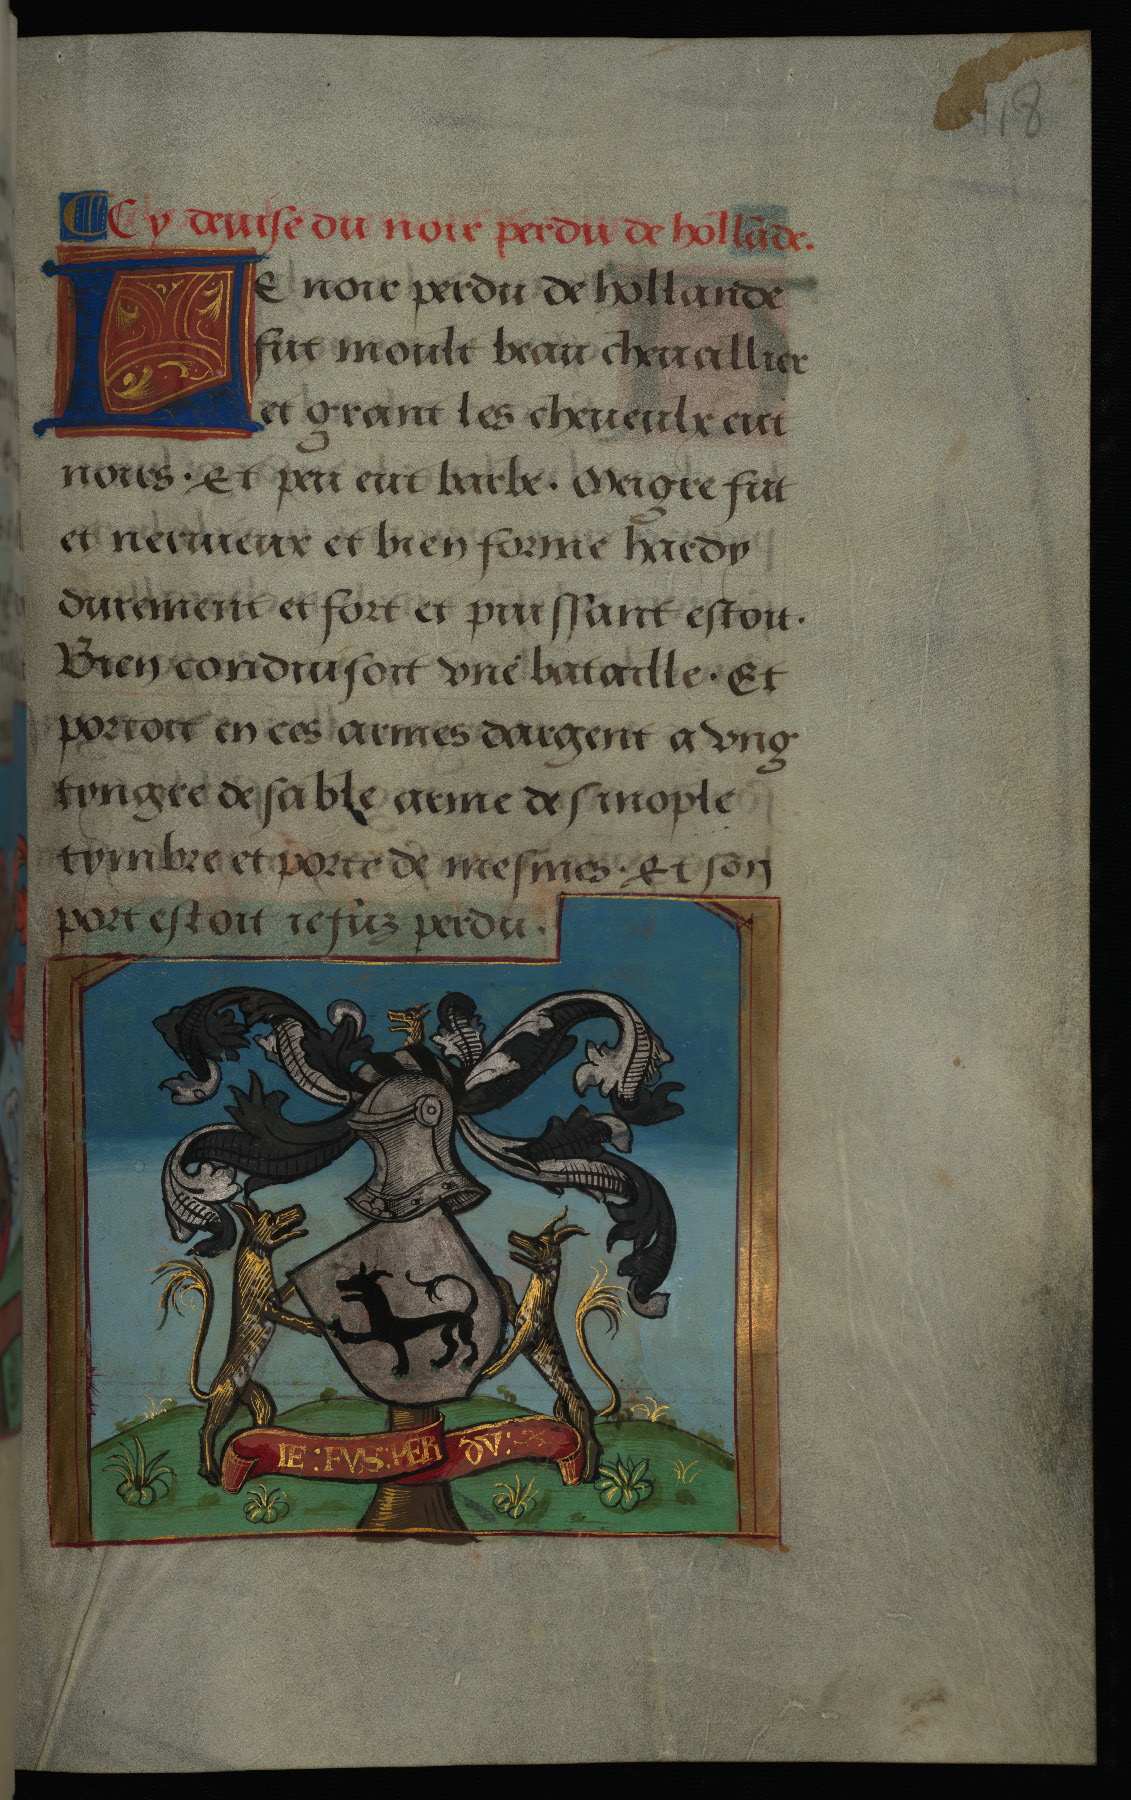 118
Cy deuise du noir perdu de hollãde.
Le noir perdu de hollande
fut moult beau cheuallier
et grant les cheueulx eut
noirs. Et peu eut barbe. Meigre fut
et nerueux et bien forme hardy
durement et fort et puissant estoit.
Bien conduisoit vne bataille. Et
portoit en ces armes dargent a vng
tyngre de sable arme de sinople
tymbre et porte de mesmes. Et son
port estoit ie fuz perdu.
IE : FVS : PER DV :